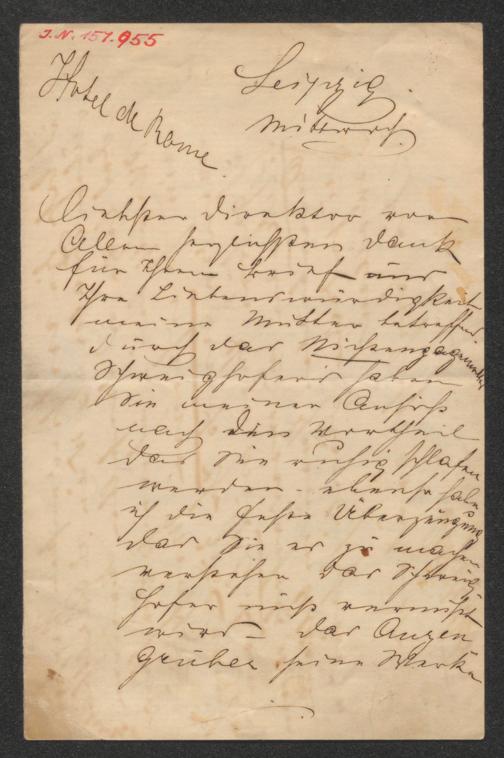 J.N. 151.955
Hotel de Rome
Leipzig.
Mittwoch.
Liebster Direktor vor
Allem herzlichsten Dank
für Ihren Brief und
Ihre Liebenswürdigkeit
meine Mutter betreffend.
durch das Nichtengagement
Schweighofers haben
Sie meiner Ansicht
nach den Vortheil
das Sie ruhig schlafen
werden. ebenso habe
ich die feste Überzeugung
das Sie es zu machen
verstehen das Schweig
hofer nicht vermißt
wird – das Anzen
gruber seine Werke